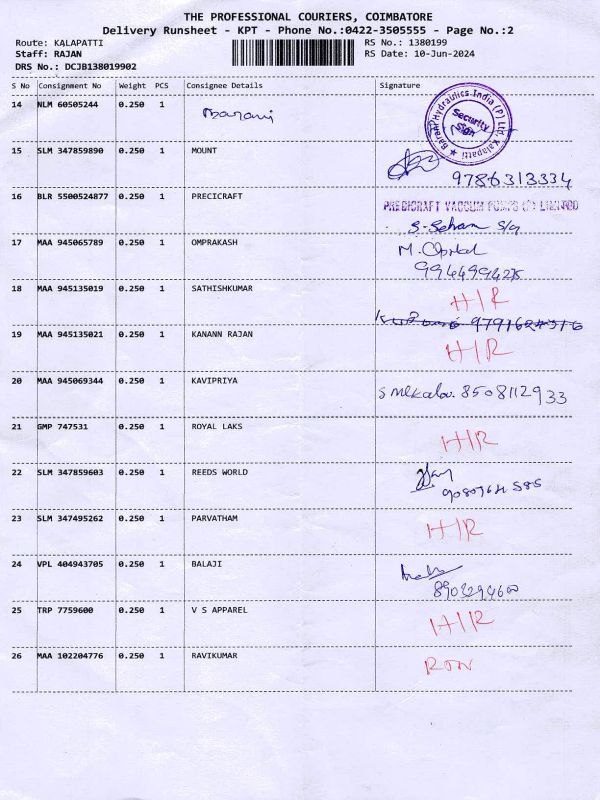 THE PROFESSIONAL COURIERS, COIMBATORE
Delivery Runsheet - KPT - Phone No.:0422-3505555 - Page No.:2
Route: KALAPATTI
Staff: RAJAN
DRS No.: DCJB138019902
RS No.: 1380199
RS Date: 10-Jun-2024
S No Consignment No Weight PCS Consignee Details Signature
14 NLM 60505244 0.250 1
Hydraulics-India (P) Ltd, Kalapatti
Security
Sign
15 SLM 347859890 0.250 1 MOUNT
9786313334
16 BLR 5500524877 0.250 1 PRECICRAFT
PRECICRAFT VACUUM LIMITED
17 MAA 945065789 0.250 1 OMPRAKASH M.
18 MAA 945135019 0.250 1 SATHISHKUMAR H/R
19 MAA 945135021 0.250 1 KANANN RAJAN H/R
20 MAA 945069344 0.250 1 KAVIPRIYA 8508112933
21 GMP 747531 0.250 1 ROYAL LAKS H/R
22 SLM 347859603 0.250 1 REEDS WORLD
23 SLM 347495262 0.250 1 PARVATHAM H/R
24 VPL 404943705 0.250 1 BALAJI
25 TRP 7759600 0.250 1 V S APPAREL H/R
26 MAA 102204776 0.250 1 RAVIKUMAR